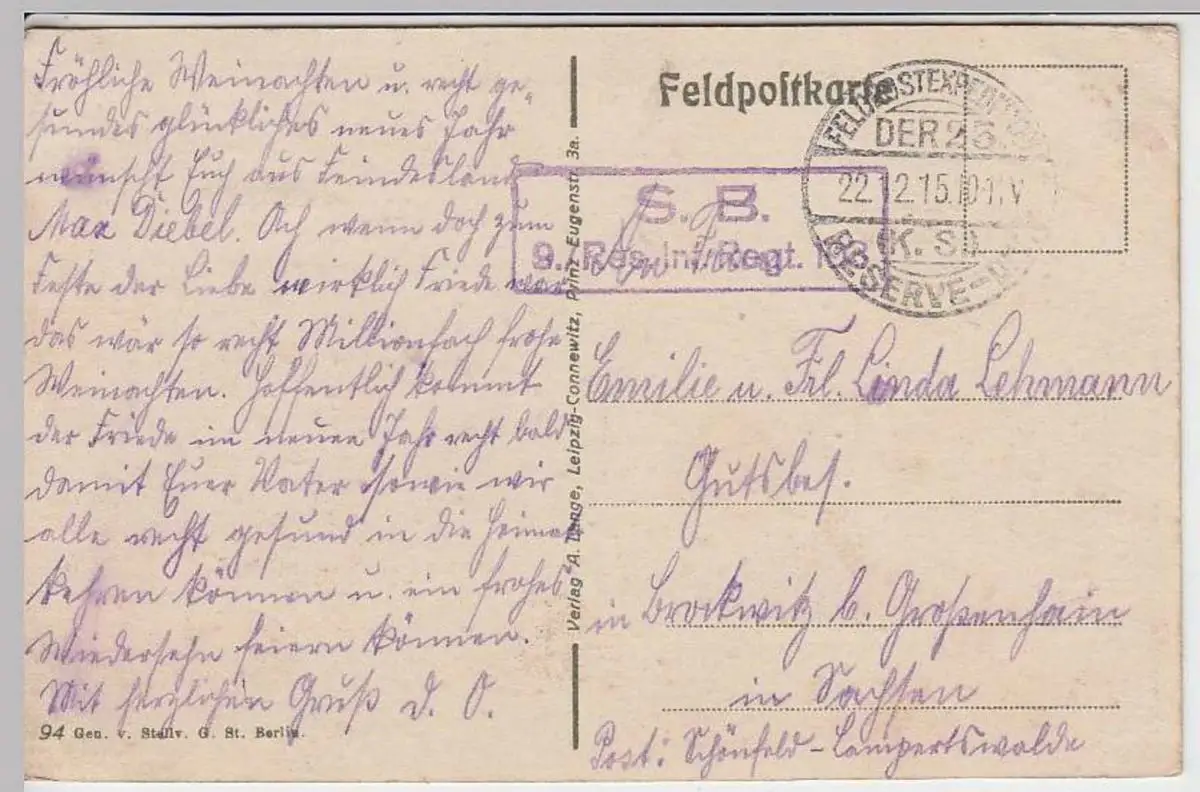 Fröhliche Weinachten u. recht ge-
sundes glückliches neues Jahr
wünscht Euch aus Feindesland
Max Diebel. Ach wenn doch zum
Feste der Liebe wirklich Friede war
das wär so recht Millionfach frohe
Weinachten. Hoffentlich kommt
der Friede im neuen Jahr recht bald
damit Euer Vater sowie wir
alle recht gesund in die Heimat
kehren können u. ein frohes
Wiedersehn feiern können.
Mit herzlichen Gruß d. O.
94 Gen. v. Stellv. G. St. Berlin.
Verlag A. Lange, Leipzig-Connewitz, Prinz Eugenstr. 3a.
Feldpostkarte
FELDPOSTEXPEDITION
DER 23.
22.12.15.
(K. S.)
RESERVE-D
S. B.
9. Res. Inf. Regt.
Emilie u. Frl. Linda Lehmann
Gutsbes.
in Brockwitz b. Großenhain
in Sachsen
Post: Schönfeld-Lampertswalde